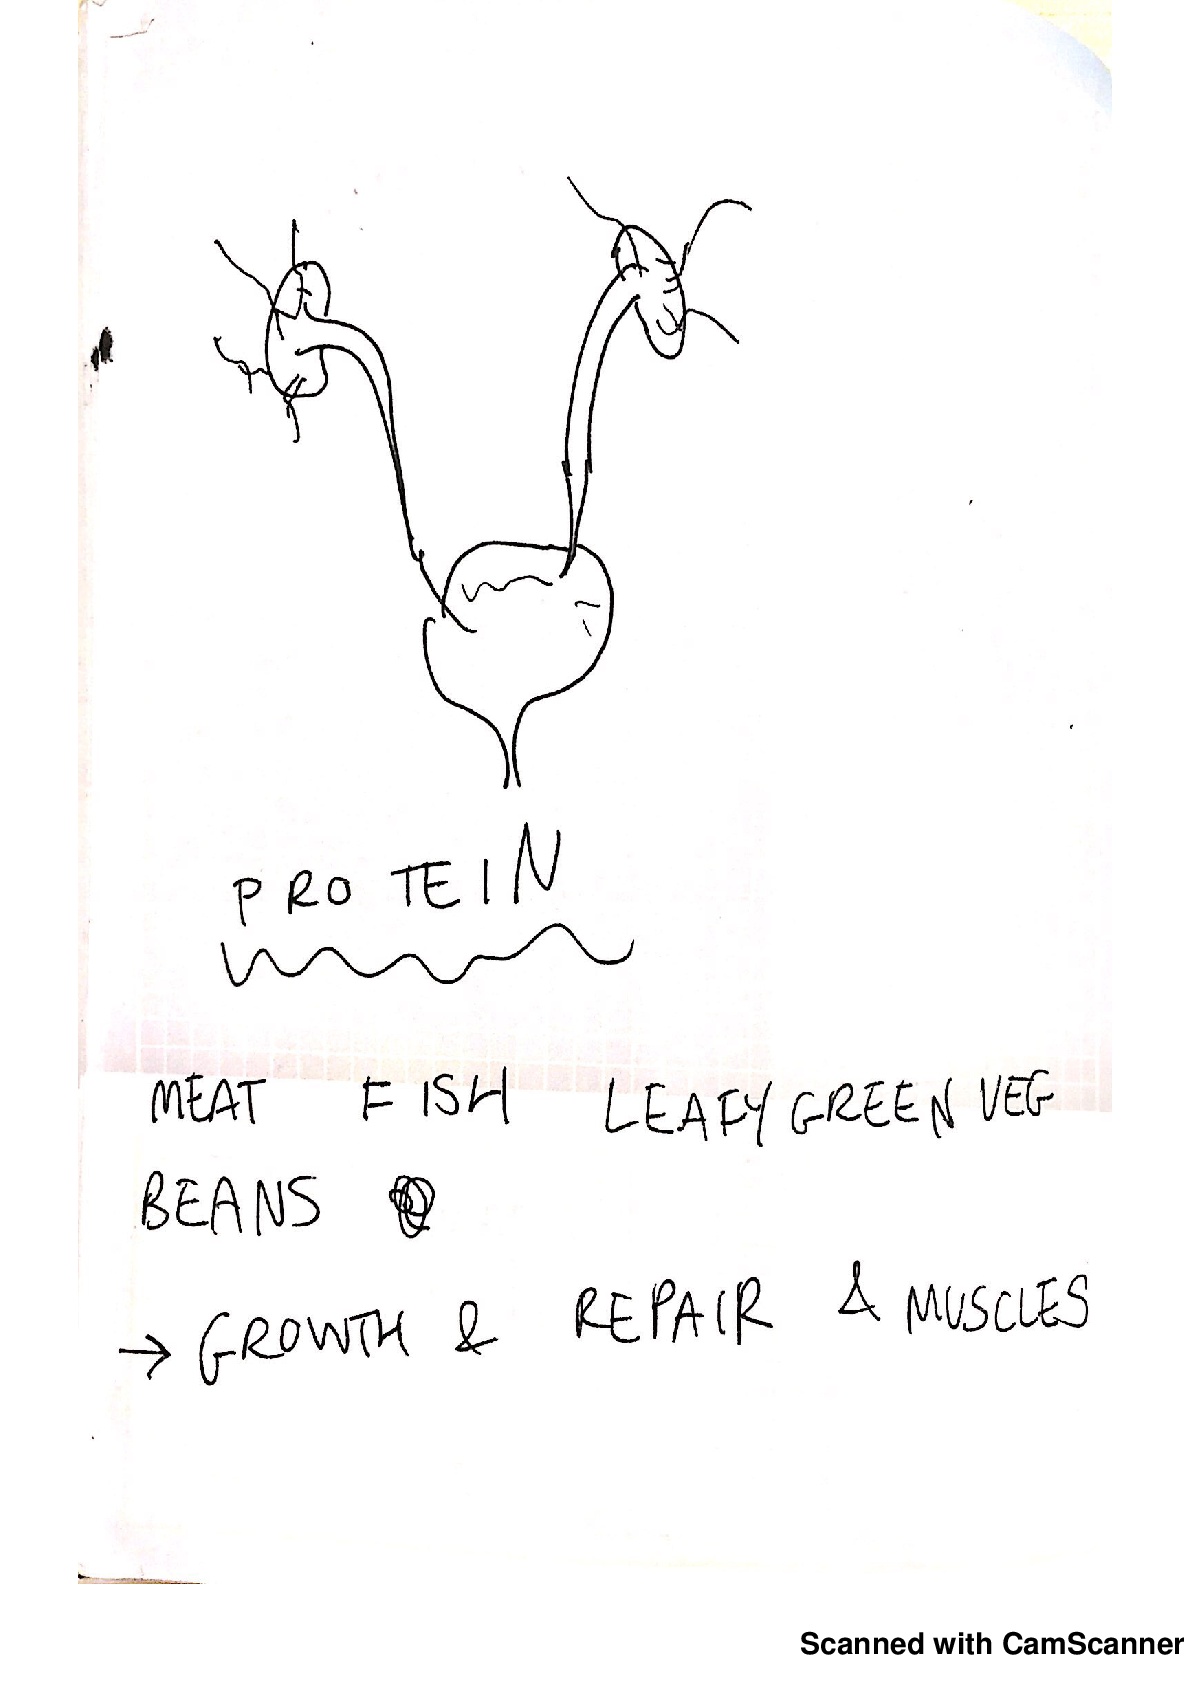 PROTEIN
MEAT FISH LEAFY GREEN VEG
BEANS
→ GROWTH & REPAIR & MUSCLES
Scanned with CamScanner